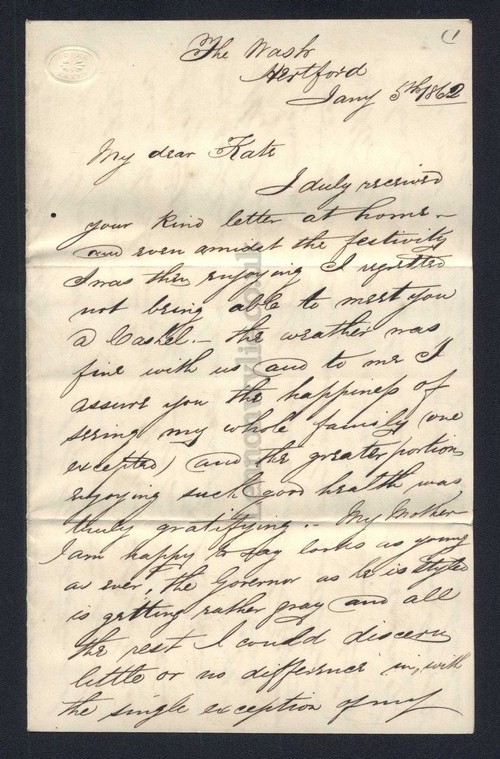 (1
The Wash
Hertford
Jany 5th 1862
My dear Kate
I duly received
your kind letter at home -
and even amidst the festivity
I was then enjoying I regretted
not being able to meet you
a Cashel. - the weather was
fine with us and to me I
assure you the happiness of
seeing my whole family (one
excepted) and the greater portion
enjoying such good health was
truly gratifying. - My Mother
I am happy to say looks as young
as ever, the Governor as he is styled
is getting rather gray and all
the rest I could discern
little or no difference in, with
the single exception of my